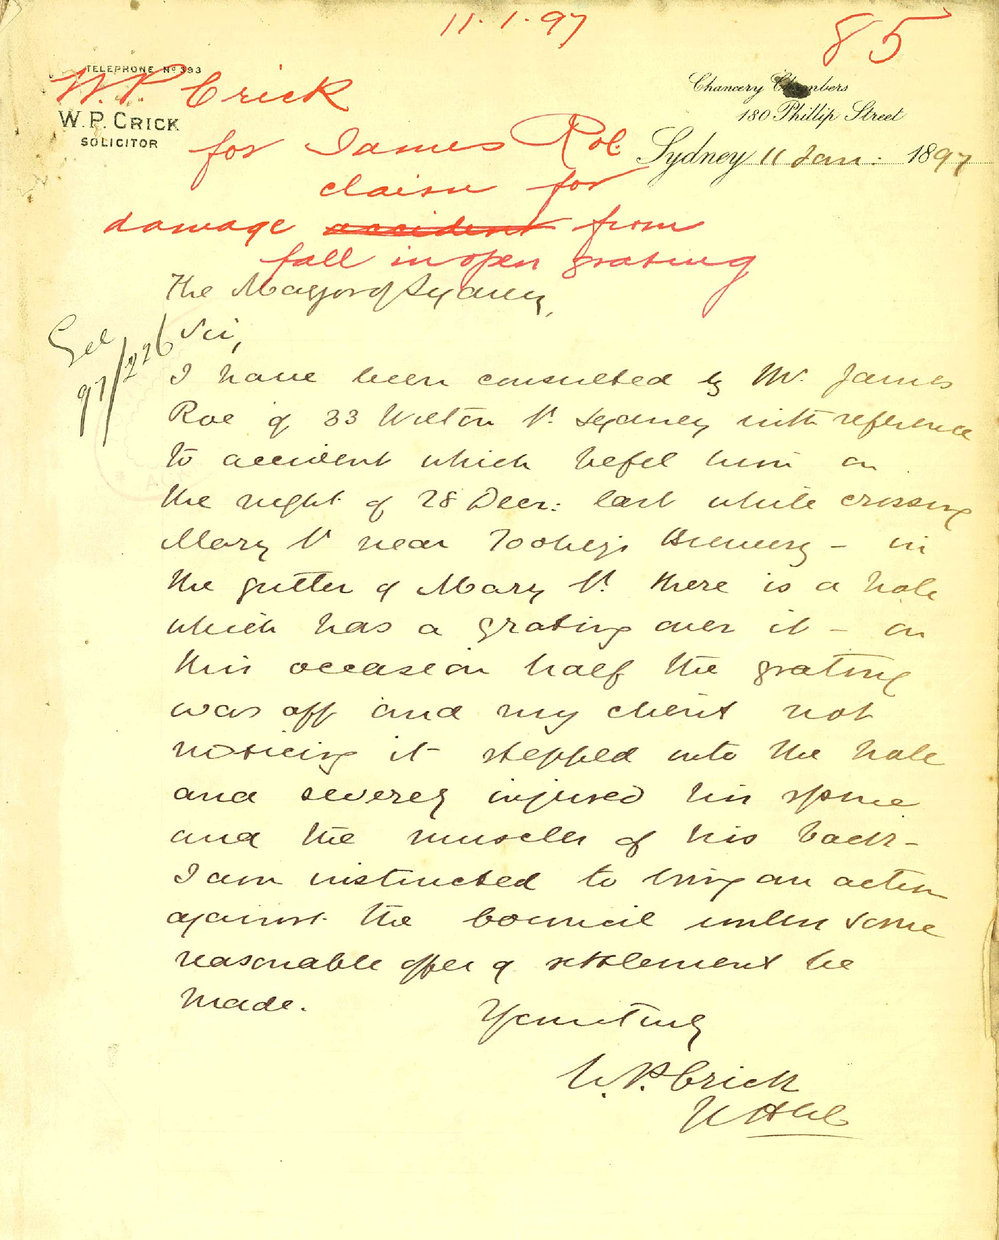 11.1.97
85
TELEPHONE No 393
W.P. CRICK
SOLICITOR
Chancery Chambers
180 Phillip Street
Sydney 11 Jan: 1897
W. P Crick
for James Roe
claim for
damage accident from
fall in open grating
See
97/226
The Mayor of Sydney,
Sir,
I have been consulted by Mr. James
Roe of 33 Wilton St. Sydney with reference
to accident which befel him on
the night of 28 Decr: last while crossing
Mary St near Toohey's Brewery – in
the gutter of Mary St. there is a hole
which has a grating over it – on
this occasion half the grating
was off and my client not
noticing it stepped into the hole
and severely injured his spine
and the muscles of his back –
I am instructed to bring an action
against the Council unless some
reasonable offer of settlement be
made.
Yours truly
W. P. Crick